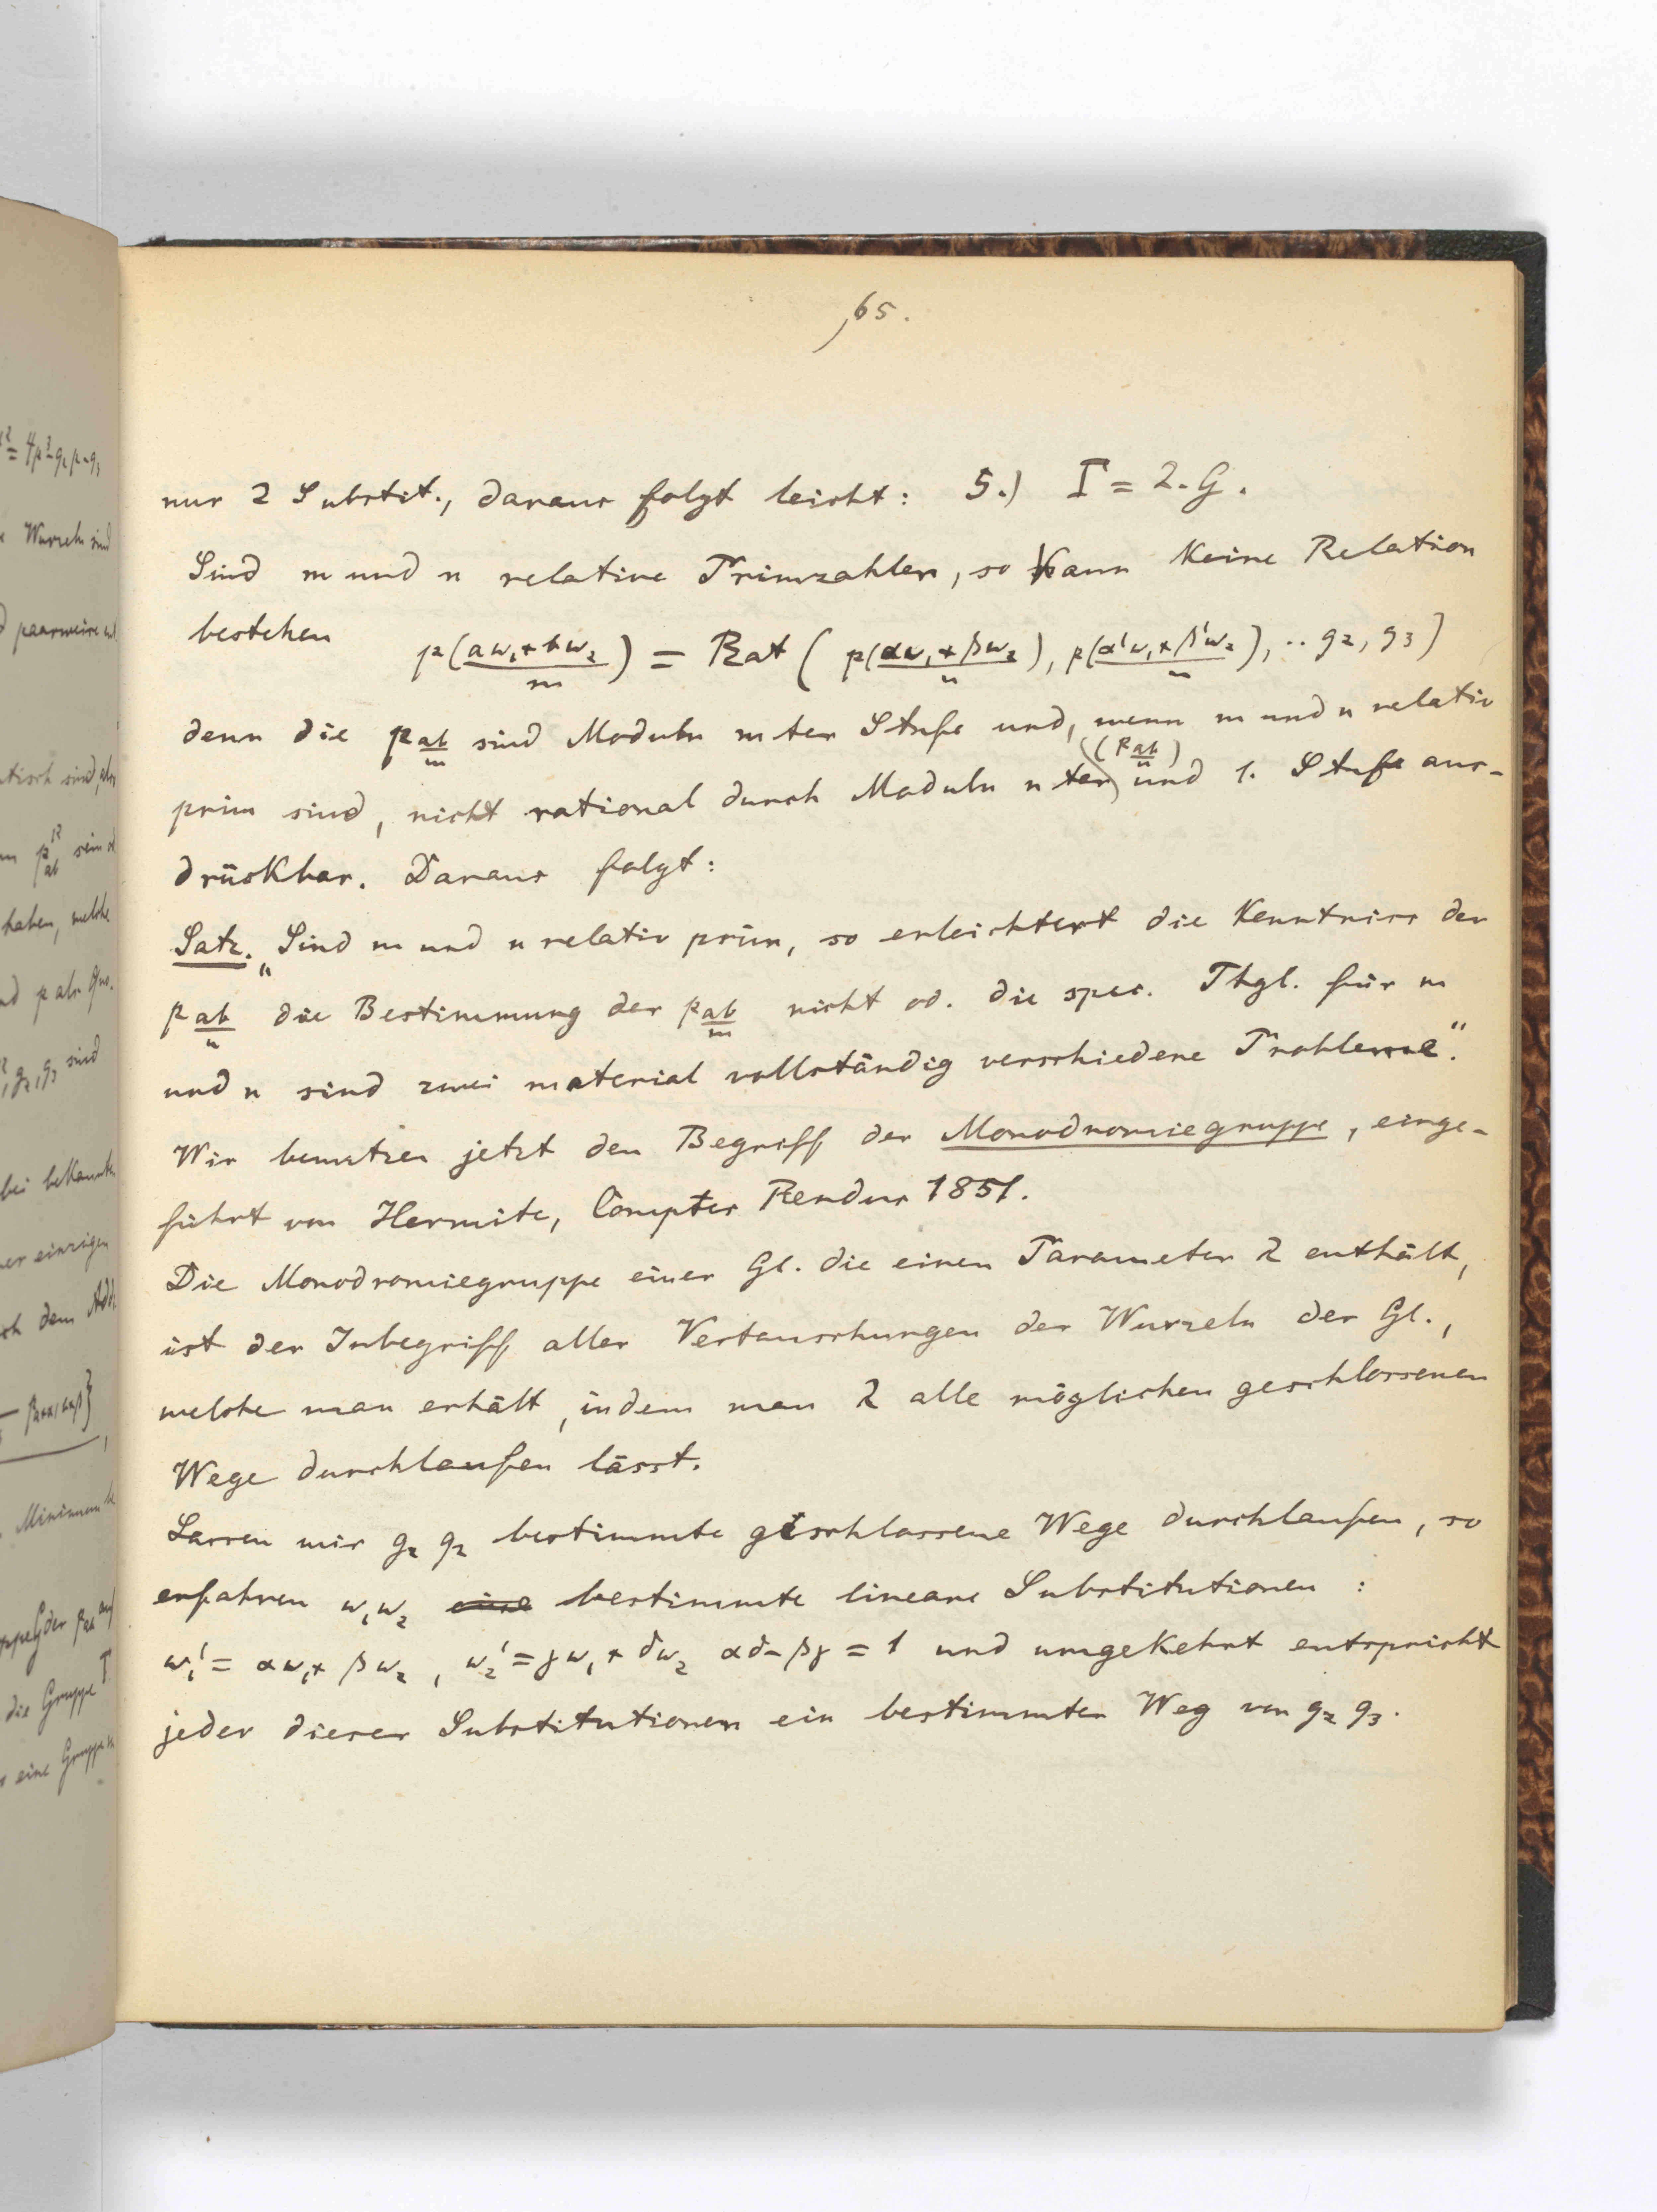 65.
nur 2 Substit., daraus folgt leicht: 5.) Γ = 2.G.
Sind m und n relative Primzahlen, so kann keine Relation
bestehen p(aω₁+bω₂/m) = Rat ( p(αω₁+βω₂/n), p(α'ω₁+β'ω₂/n), .. g₂, g₃)
denn die p ab/m sind Moduln mter Stufe und, wenn m und n relativ
prim sind, nicht rational durch Moduln nter (p ab/n) und 1. Stufe aus-
drückbar. Daraus folgt:
Satz. „Sind m und n relativ prim, so erleichtert die Kenntniss der
p ab/n die Bestimmung der p ab/m nicht od. die spec. Thgl. für m
und n sind zwei material vollständig verschiedene Probleme“.
Wir benutzen jetzt den Begriff der Monodromiegruppe, einge-
führt von Hermite, Comptes Rendus 1851.
Die Monodromiegruppe einer Gl. die einen Parameter λ enthält,
ist der Inbegriff aller Vertauschungen der Wurzeln der Gl.,
welche man erhält, indem man λ alle möglichen geschlossenen
Wege durchlaufen lässt.
Lassen wir g₂ g₂ bestimmte geschlossene Wege durchlaufen, so
erfahren ω₁ω₂ eine bestimmte lineare Substitutionen :
ω₁' = αω₁+ βω₂ , ω₂' = γω₁ + δω₂ αδ-βγ = 1 und umgekehrt entspricht
jeder dieser Substitutionen ein bestimmter Weg von g₂ g₃.